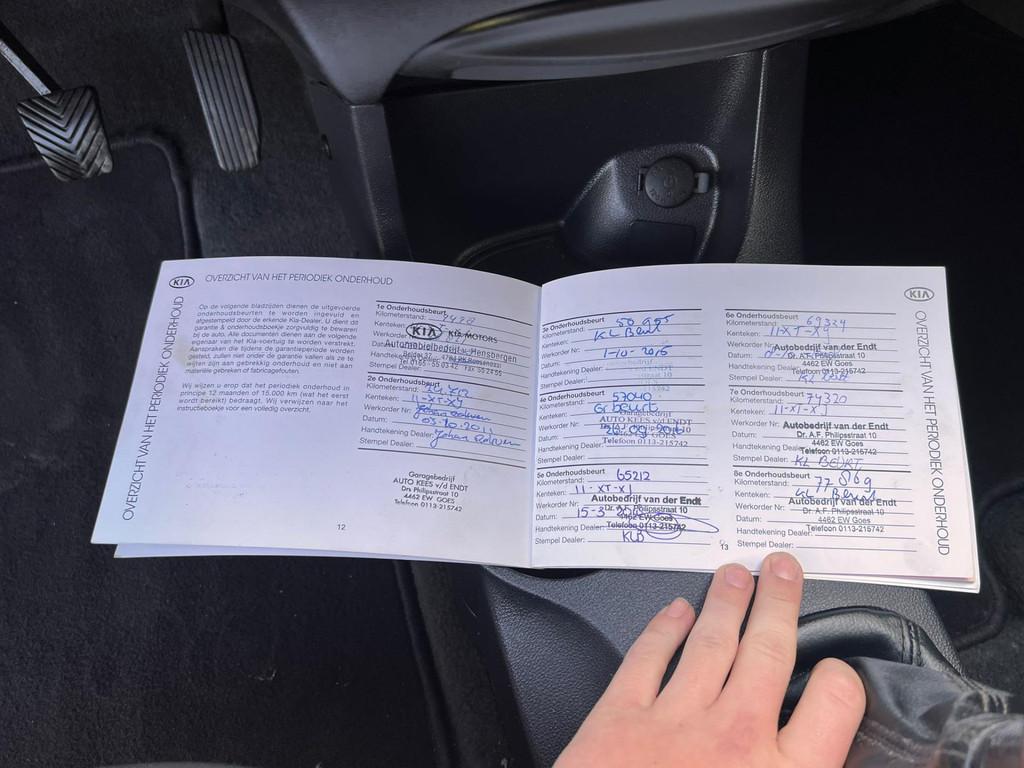 KIA OVERZICHT VAN HET PERIODIEK ONDERHOUD
OVERZICHT VAN HET PERIODIEK ONDERHOUD
Op de volgende bladzijden dienen de uitgevoerde
onderhoudsbeurten te worden ingevuld en
afgestempeld door de erkende Kia-Dealer. U dient dit
garantie & onderhoudsboekje zorgvuldig te bewaren
bij de auto. Alle documenten dienen aan de volgende
eigenaar van het Kia-voertuig te worden verstrekt.
Aanspraken die tijdens de garantieperiode worden
gesteld, zullen niet onder de garantie vallen als ze te
wijten zijn aan gebrekkig onderhoud en niet aan
materiële gebreken of fabricagefouten.
Wij wijzen u erop dat het periodiek onderhoud in
principe 12 maanden of 15.000 km (wat het eerst
wordt bereikt) bedraagt. Wij verwijzen naar het
instructieboekje voor een volledig overzicht.
12
1e Onderhoudsbeurt
Kilometerstand:
Kenteken:
KIA KIA MOTORS
Werkorder
Automobielbedrijf v. Hensbergen
Datum:
Handtekening
Stempel Dealer:
2e Onderhoudsbeurt
Kilometerstand:
Kenteken: 11-XT-XJ
Werkorder Nr:
Datum:
Handtekening Dealer:
Stempel Dealer:
Garagebedrijf
AUTO KEES v/d ENDT
Drs Philipsstraat 10
4462 EW GOES
Telefoon 0113-215742
3e Onderhoudsbeurt
Kilometerstand:
Kenteken: KL Beurt
Werkorder Nr:
Datum: 1-10-2015
Handtekening Dealer:
Stempel Dealer:
4e Onderhoudsbeurt
Kilometerstand: 57040
Kenteken: Gr beurt
AUTO KEES v/d ENDT
Werkorder Nr:
Datum:
Handtekening Dealer: Telefoon 0113-215742
Stempel Dealer:
5e Onderhoudsbeurt
Kilometerstand: 65212
Kenteken: 11-XT-XJ
Werkorder Nr: Autobedrijf van der Endt
Dr. A.F. Philipsstraat 10
Datum: 15-3
4462 EW Goes
Handtekening Dealer: Telefoon 0113-215742
Stempel Dealer: KLB
13
KIA
OVERZICHT VAN HET PERIODIEK ONDERHOUD
6e Onderhoudsbeurt
Kilometerstand: 69324
Kenteken: 11-XT-XJ
Werkorder Nr: Autobedrijf van der Endt
Datum: Dr. A.F. Philipsstraat 10
4462 EW Goes
Handtekening Dealer: Telefoon 0113-215742
Stempel Dealer:
7e Onderhoudsbeurt
Kilometerstand: 74320
Kenteken: 11-XT-XJ
Werkorder Nr: Autobedrijf van der Endt
Datum: Dr. A.F. Philipsstraat 10
4462 EW Goes
Handtekening Dealer: Telefoon 0113-215742
Stempel Dealer: KL BEURT
8e Onderhoudsbeurt
Kilometerstand: 77 8169
Kenteken: KL Beurt
Werkorder Nr: Autobedrijf van der Endt
Datum: Dr. A.F. Philipsstraat 10
4462 EW Goes
Handtekening Dealer: Telefoon 0113-215742
Stempel Dealer: